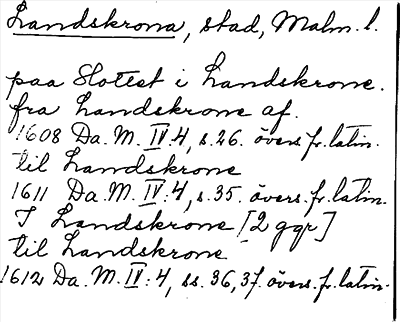 Landskrona, stad, Malm. l.
paa Slotet i Landskrone.
fra Landskrone af.
1608 Da. M. IV:4, s. 26. övers. fr. latin.
til Landskrone
1611 Da. M. IV:4, s. 35. övers. fr. latin.
I Landskrone [2 ggr]
til Landskrone
1612 Da. M. IV:4, ss. 36, 37. övers. fr. latin.